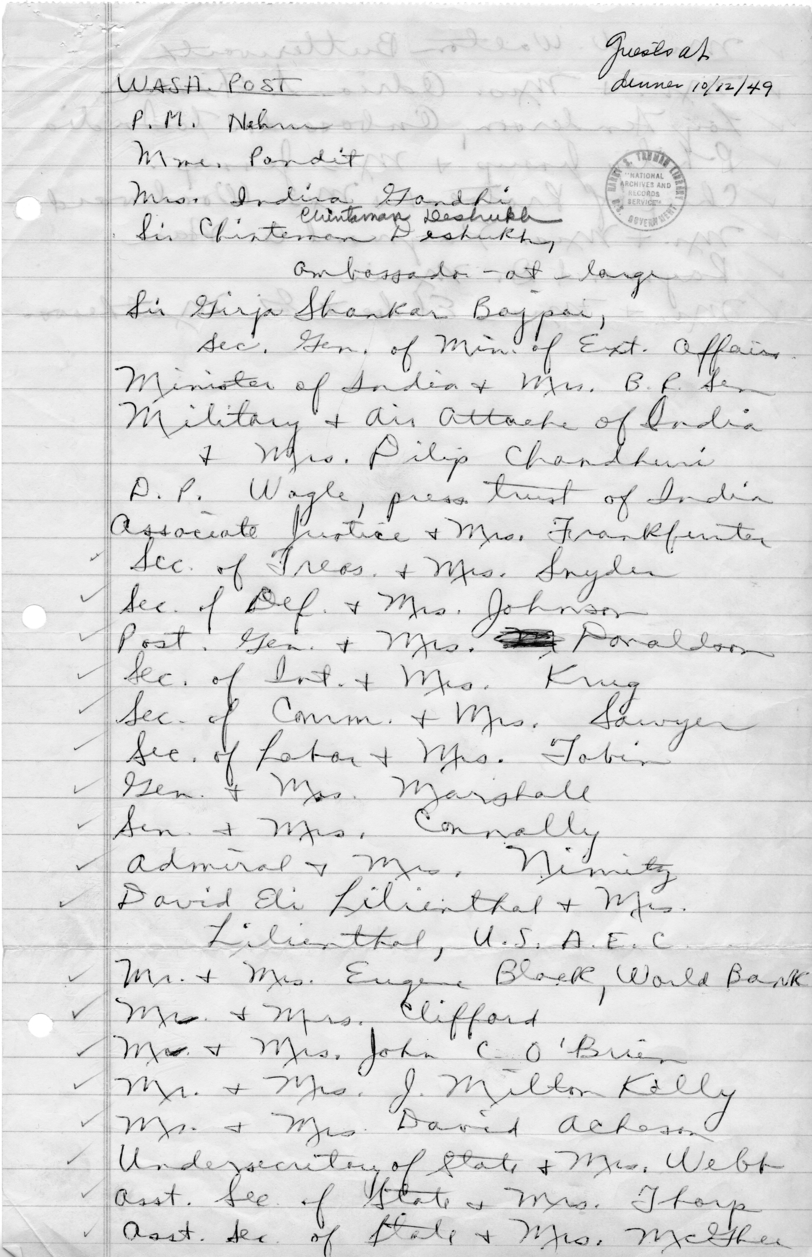 Guests at
dinner 10/12/49
WASH. POST
P.M. Nehru
Mme. Pandit
Mrs. Indira Gandhi
Chintaman Deshukh
Sir Chinteman Deshukh,
ambassador-at-large
Sir Girja Shankar Bajpai,
Sec. Gen. of Min. of Ext. Affairs
Minister of India + Mrs. B.R. Sen
Military + Air Attache of India
+ Mrs. Dilip Chandhuri
D.P. Wagle, press trust of India
Associate Justice + Mrs. Frankfurter
Sec. of Treas. + Mrs. Snyder
Sec. of Def. + Mrs. Johnson
Post. Gen. + Mrs. Donaldson
Sec. of Int. + Mrs. Krug
Sec. of Comm. + Mrs. Sawyer
Sec. of Labor + Mrs. Tobin
Gen. + Mrs. Marshall
Sen. + Mrs. Connally
Admiral + Mrs. Nimitz
David Eli Lilienthal + Mrs.
Lilienthal, U.S. A.E.C
Mr. + Mrs. Eugene Black, World Bank
Mr. + Mrs. Clifford
Mr. + Mrs. John C. O'Brien
Mr. + Mrs. J. Milton Kelly
Mr. + Mrs. David Acheson
Undersecretary of State + Mrs. Webb
Asst. Sec. of State + Mrs. Thorp
Asst. Sec. of State + Mrs. McGhee
HARRY S. TRUMAN LIBRARY
NATIONAL
ARCHIVES AND
RECORDS
SERVICE
U.S. GOVERNMENT